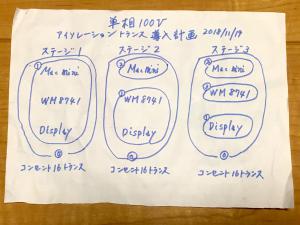 単相100V
アイソレーショントランス 導入計画 2018/11/19
ステージ1
① Mac mini
WM8741
Display
⑤
コンセント16トランス
ステージ2
② Mac mini
① WM8741
Display
コンセント16トランス
ステージ3
③ Mac mini
② WM8741
① Display
コンセント16トランス